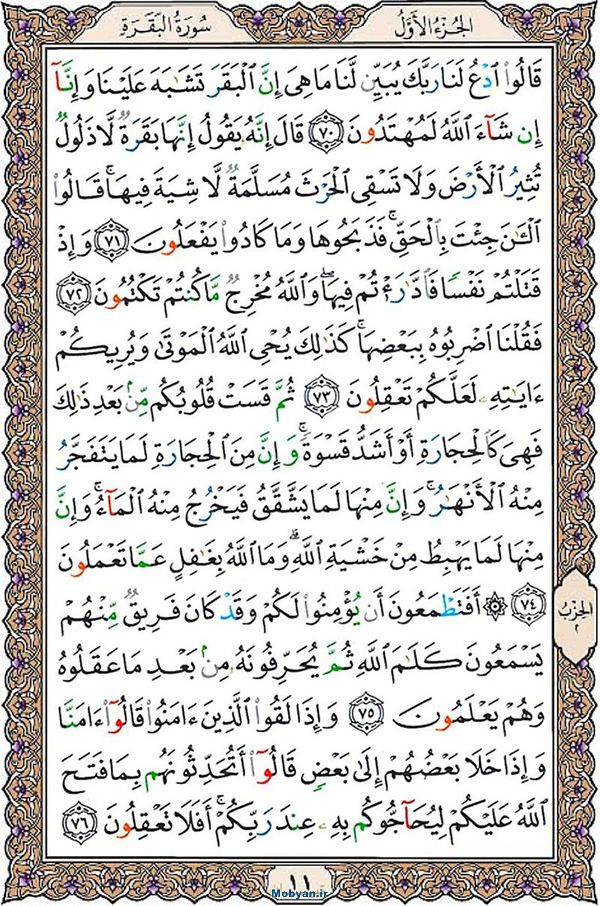 سُورَةُ البَقَرَة
الجُزءُ الأَوَّلُ
قَالُوا۟ ٱدْعُ لَنَا رَبَّكَ يُبَيِّن لَّنَا مَا هِىَ إِنَّ ٱلْبَقَرَ تَشَـٰبَهَ عَلَيْنَا وَإِنَّآ
إِن شَآءَ ٱللَّهُ لَمُهْتَدُونَ ٧٠ قَالَ إِنَّهُۥ يَقُولُ إِنَّهَا بَقَرَةٌ لَّا ذَلُولٌ
تُثِيرُ ٱلْأَرْضَ وَلَا تَسْقِى ٱلْحَرْثَ مُسَلَّمَةٌ لَّا شِيَةَ فِيهَا ۚ قَالُوا۟
ٱلْـَٔـٰنَ جِئْتَ بِٱلْحَقِّ ۚ فَذَبَحُوهَا وَمَا كَادُوا۟ يَفْعَلُونَ ٧١ وَإِذْ
قَتَلْتُمْ نَفْسًا فَٱدَّٰرَْٰٔتُمْ فِيهَا ۖ وَٱللَّهُ مُخْرِجٌ مَّا كُنتُمْ تَكْتُمُونَ ٧٢
فَقُلْنَا ٱضْرِبُوهُ بِبَعْضِهَا ۚ كَذَٰلِكَ يُحْىِ ٱللَّهُ ٱلْمَوْتَىٰ وَيُرِيكُمْ
ءَايَـٰتِهِۦ لَعَلَّكُمْ تَعْقِلُونَ ٧٣ ثُمَّ قَسَتْ قُلُوبُكُم مِّنۢ بَعْدِ ذَٰلِكَ
فَهِىَ كَٱلْحِجَارَةِ أَوْ أَشَدُّ قَسْوَةً ۚ وَإِنَّ مِنَ ٱلْحِجَارَةِ لَمَا يَتَفَجَّرُ
مِنْهُ ٱلْأَنْهَـٰرُ ۚ وَإِنَّ مِنْهَا لَمَا يَشَّقَّقُ فَيَخْرُجُ مِنْهُ ٱلْمَآءُ ۚ وَإِنَّ
مِنْهَا لَمَا يَهْبِطُ مِنْ خَشْيَةِ ٱللَّهِ ۗ وَمَا ٱللَّهُ بِغَـٰفِلٍ عَمَّا تَعْمَلُونَ
٧٤ ۞ أَفَتَطْمَعُونَ أَن يُؤْمِنُوا۟ لَكُمْ وَقَدْ كَانَ فَرِيقٌ مِّنْهُمْ
الحِزب ٢
يَسْمَعُونَ كَلَـٰمَ ٱللَّهِ ثُمَّ يُحَرِّفُونَهُۥ مِنۢ بَعْدِ مَا عَقَلُوهُ
وَهُمْ يَعْلَمُونَ ٧٥ وَإِذَا لَقُوا۟ ٱلَّذِينَ ءَامَنُوا۟ قَالُوٓا۟ ءَامَنَّا
وَإِذَا خَلَا بَعْضُهُمْ إِلَىٰ بَعْضٍ قَالُوٓا۟ أَتُحَدِّثُونَهُم بِمَا فَتَحَ
ٱللَّهُ عَلَيْكُمْ لِيُحَآجُّوكُم بِهِۦ عِندَ رَبِّكُمْ ۚ أَفَلَا تَعْقِلُونَ ٧٦
١١
Mobyan.ir